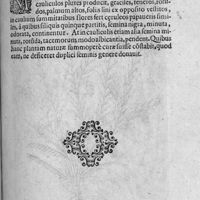 cauliculos plures producit, graciles, teneros, rotun-
dos, palmum altos, folijs sini ex opposito vestitos,
in caulium summitatibus flores fert cęruleos papaueris simi-
les, à quibus siliquis quinque partitis, semina nigra, minuta,
odorata, continentur. At in cauliculis etiam alia semina mi-
nuta, rotūda, racemorum modo albicantia, pendent. Quibus
hanc plantam naturæ summopere curæ fuisse cōstabit, quod
eam, ne deficeret duplici seminis genere donauit.